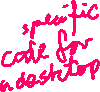 specific
code for
a desktop